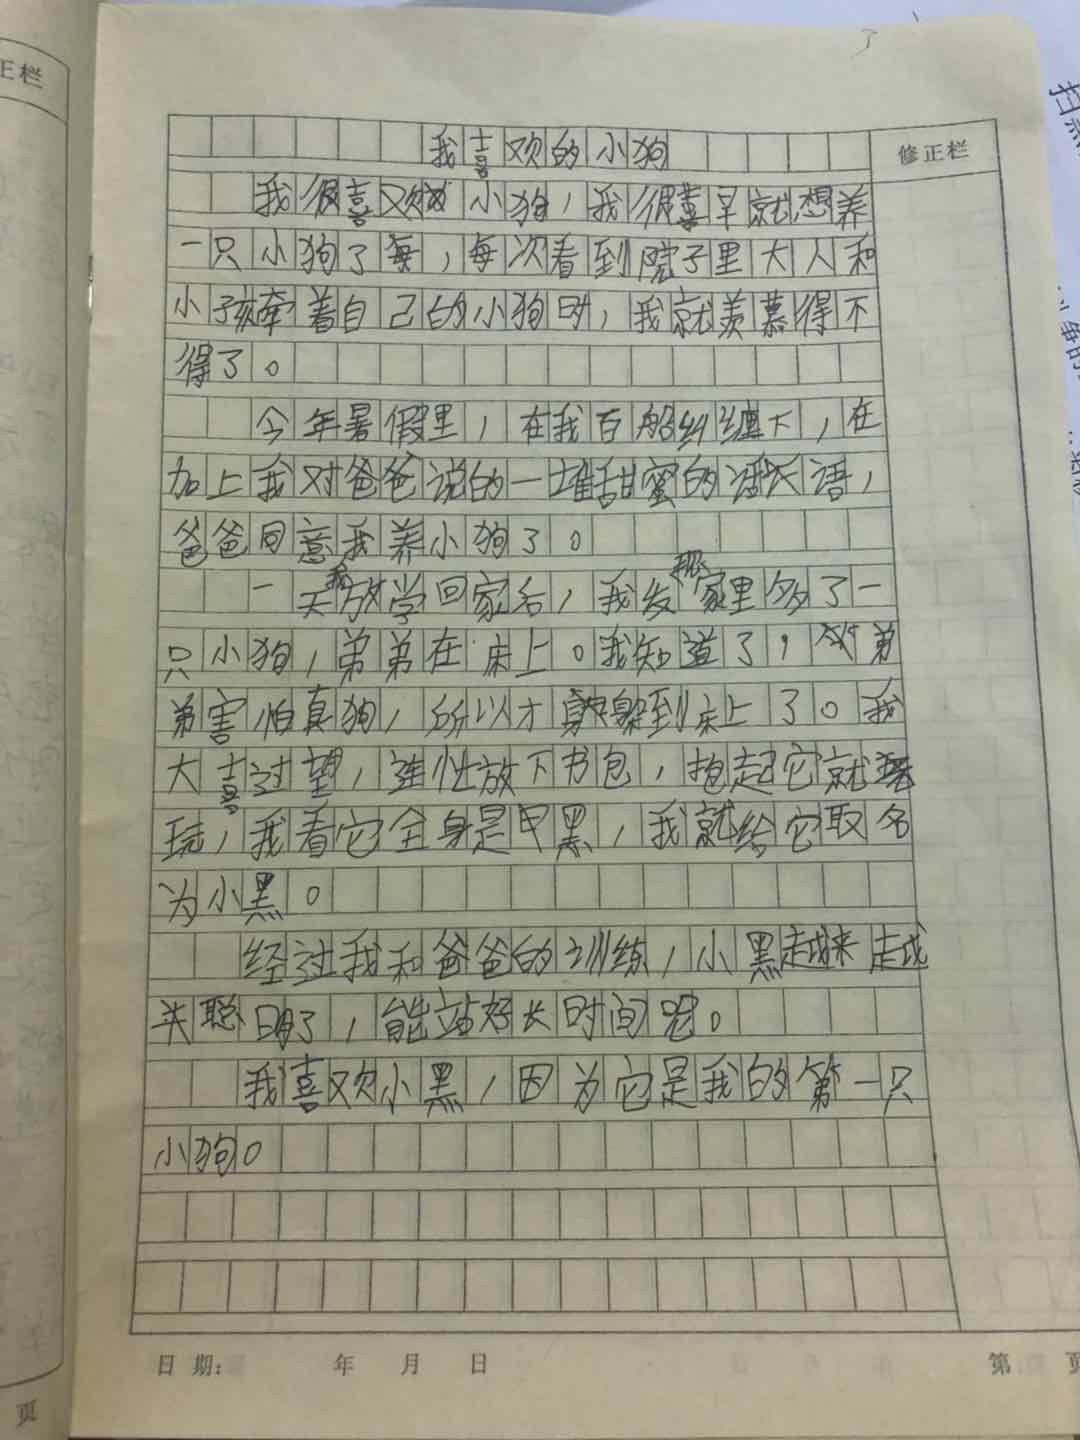 正栏
我喜欢的小狗
修正栏
我很喜欢小狗，我很早就想养
一只小狗了，每次看到院子里大人和
小孩牵着自己的小狗时，我就羡慕得不
得了。
今年暑假里，在我百般纠缠下，在
加上我对爸爸说的一堆甜蜜的话语，
爸爸同意我养小狗了。
一天我放学回家后，我发现家里多了一
只小狗，弟弟在床上。我知道了，弟
弟害怕真狗，所以才躲到床上了。我
大喜过望，连忙放下书包，抱起它就
玩，我看它全身是黑，我就给它取名
为小黑。
经过我和爸爸的训练，小黑越来越
聪明了，能站好长时间呢。
我喜欢小黑，因为它是我的第一只
小狗。
日期: 年 月 日
第 页
页